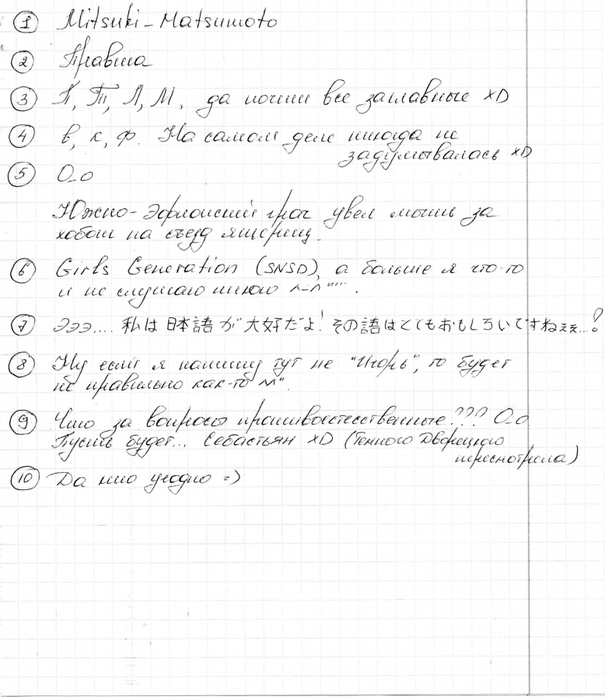 ① Mitsuki-Matsumoto
② Правша
③ К, Т, Л, М, да почти все заглавные xD
④ в, к, ф. На самом деле никогда не
задумывалась xD
⑤ O_o
Южно-Эфиопский грач увел мышь за
хобот на съезд ящериц
⑥ Girls Generation (SNSD), а больше я что-то
и не слушаю никого ^-^""
⑦ Эээ.... 私は日本語が大好だよ! その語はとてもおもしろいですねぇぇ...?
⑧ Ну если я напишу тут не "Игорь", то будет
не правильно как-то
⑨ Что за вопросы противоестественные??? O_o
Пусть будет... Себастьян xD (Темного Дворецкого
пересмотрела)
⑩ Да кто угодно =)